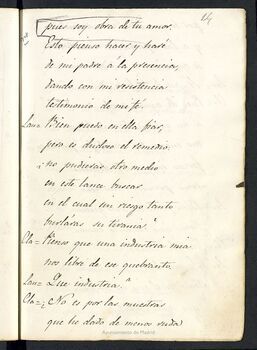 14
pues soy obra de tu amor.
Esto pienso hacer y haré
de mi padre a la presencia,
dando con mi resistencia
testimonio de mi fé.
Lau= Bien puedo en ella fiar,
pero es dudoso el remedio:
¿no pudieras otro medio
en este lance buscar
en el cual sin riesgo tanto
burláras su tirania?
Cla= Pienso que una industria mia
nos libre de ese quebranto.
Lau= Que industria?
Cla= ¿No es por las muestras
que he dado de menos ruda
Ayuntamiento de Madrid